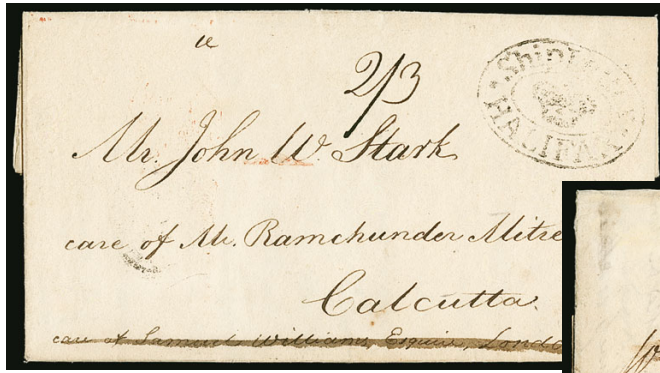 2/3
Ship
HALIFAX
Mr. John W. Stark
care of Mr. Ramchunder Mitre
Calcutta.
care of Samuel Williams, Esquire, Londo